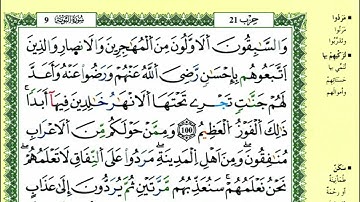 9 سورة التوبة حزب 21
وَالسَّٰبِقُونَ اَلَاوَّلُونَ مِنَ اَلْمُهَٰجِرِينَ وَالَانصَارِ وَالذِينَ
اَتَّبَعُوهُم بِإِحْسَٰنٖ رَّضِيَ اَللَّهُ عَنْهُمْ وَرَضُواْ عَنْهُ وَأَعَدَّ
لَهُمْ جَنَّٰتٖ تَجْرِے تَحْتَهَا اَلَانْهَٰرُ خَٰلِدِينَ فِيهَآ أَبَداٗ
ذَٰلِكَ اَلْفَوْزُ اَلْعَظِيمُ 100 وَمِمَّنْ حَوْلَكُم مِّنَ اَلَاعْرَابِ
مُنَٰفِقُونَ وَمِنَ اَهْلِ اِلْمَدِينَةِ مَرَدُواْ عَلَى اَلنِّفَاقِ لَا تَعْلَمُهُمْ
نَحْنُ نَعْلَمُهُمْ سَنُعَذِّبُهُم مَّرَّتَيْنِ ثُمَّ يُرَدُّونَ إِلَىٰ عَذَابٍ
مَرَدُوا
مَرَنُوا
وتدرّبوا
تُزَكِّيهِم بِهَا
تُنَمِّي بها
حسناتِهم
وأموالَهم
سَكَنٌ
طُمَأنينة